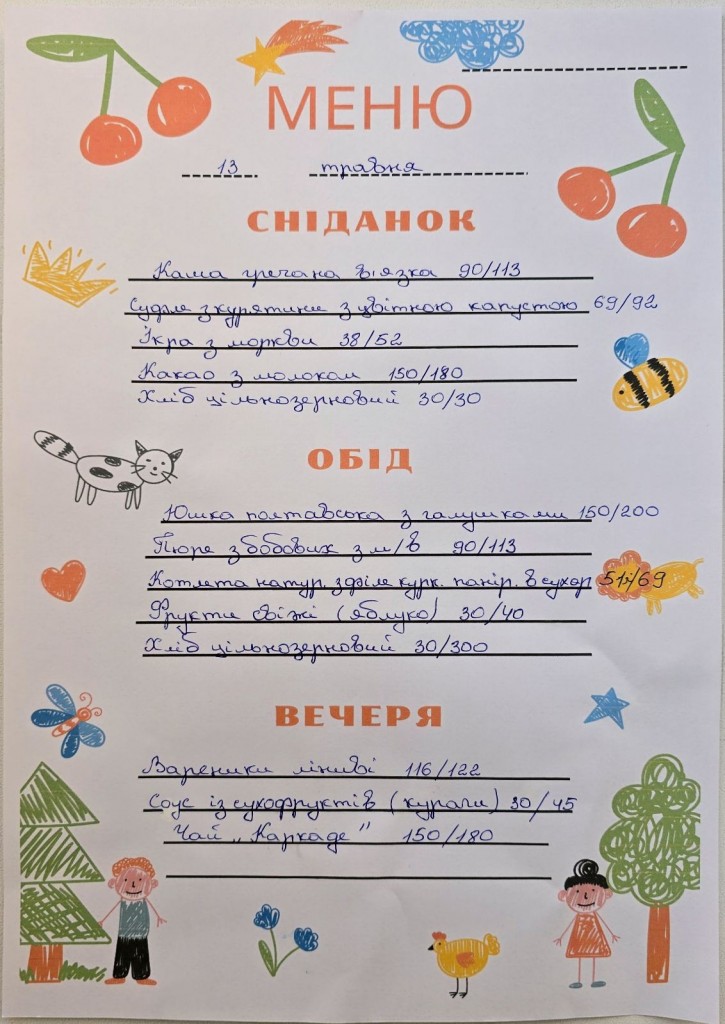 МЕНЮ
13 травня
СНІДАНОК
Каша гречана в'язка 90/113
Суфле з курятини з цвітною капустою 69/92
Ікра з моркви 38/52
Какао з молоком 150/180
Хліб цільнозерновий 30/30
ОБІД
Юшка полтавська з галушками 150/200
Пюре з бобових з м/в 90/113
Котлета натур. з філе курк. панір. в сухар 51/69
Фрукти свіжі (яблуко) 30/40
Хліб цільнозерновий 30/300
ВЕЧЕРЯ
Вареники ліниві 116/122
Соус із сухофруктів (кураги) 30/45
Чай „Каркаде" 150/180